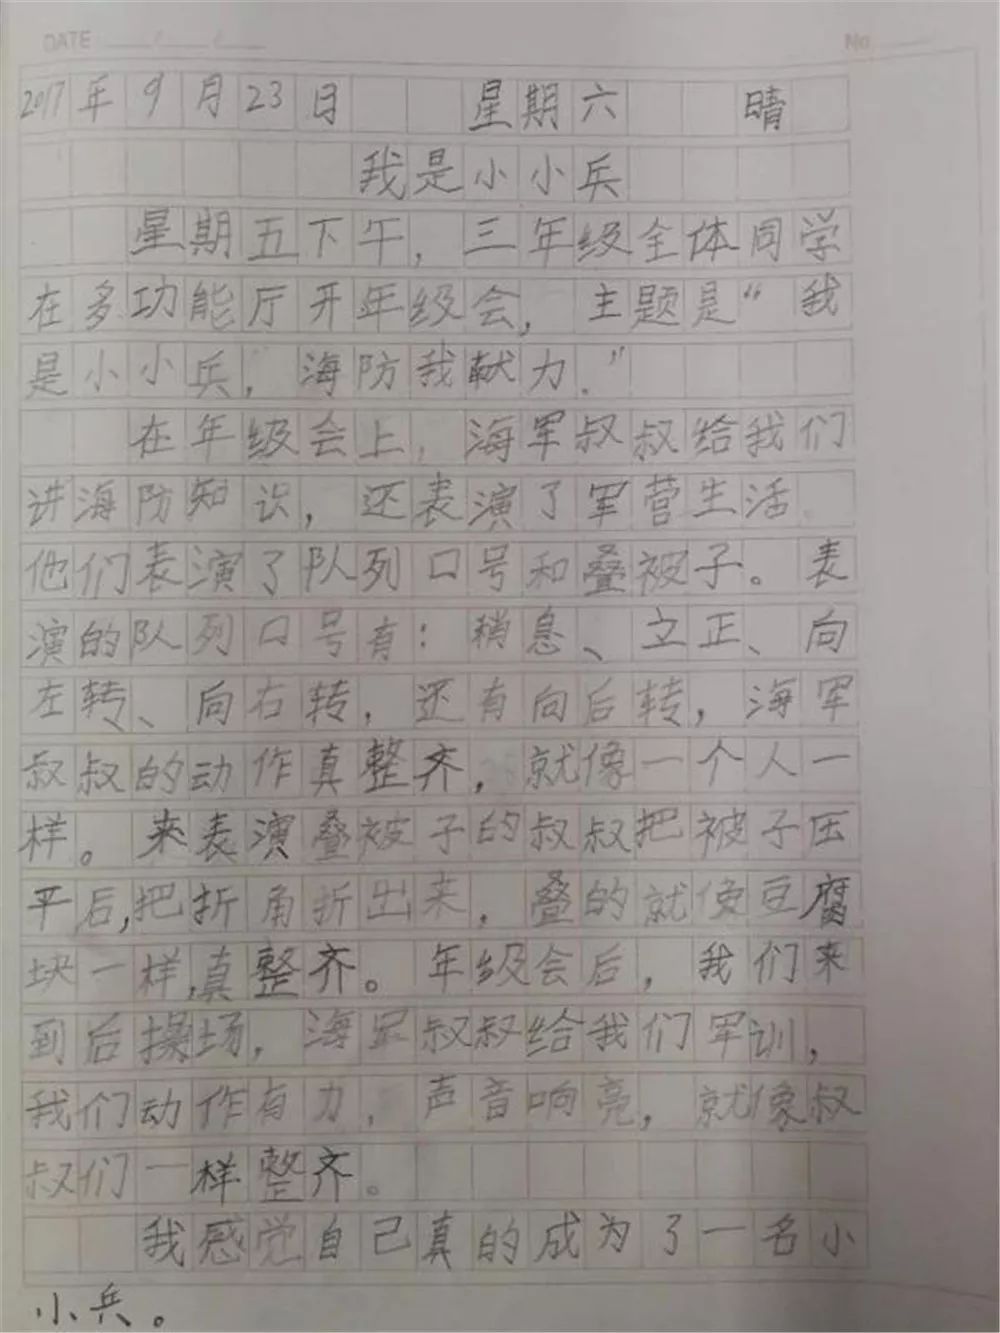 DATE / / No
2017年9月23日 星期六 晴
我是小小兵
星期五下午，三年级全体同学
在多功能厅开年级会，主题是“我
是小小兵，海防我献力.”
在年级会上，海军叔叔给我们
讲海防知识，还表演了军营生活.
他们表演了队列口号和叠被子。表
演的队列口号有：稍息、立正、向
左转、向右转，还有向后转，海军
叔叔的动作真整齐，就像一个人一
样。来表演叠被子的叔叔把被子压
平后，把折角折出来，叠的就使豆腐
块一样，真整齐。年级会后，我们来
到后操场，海军叔叔给我们军训，
我们动作有力，声音响亮，就像叔
叔们一样整齐。
我感觉自己真的成为了一名小
小兵。